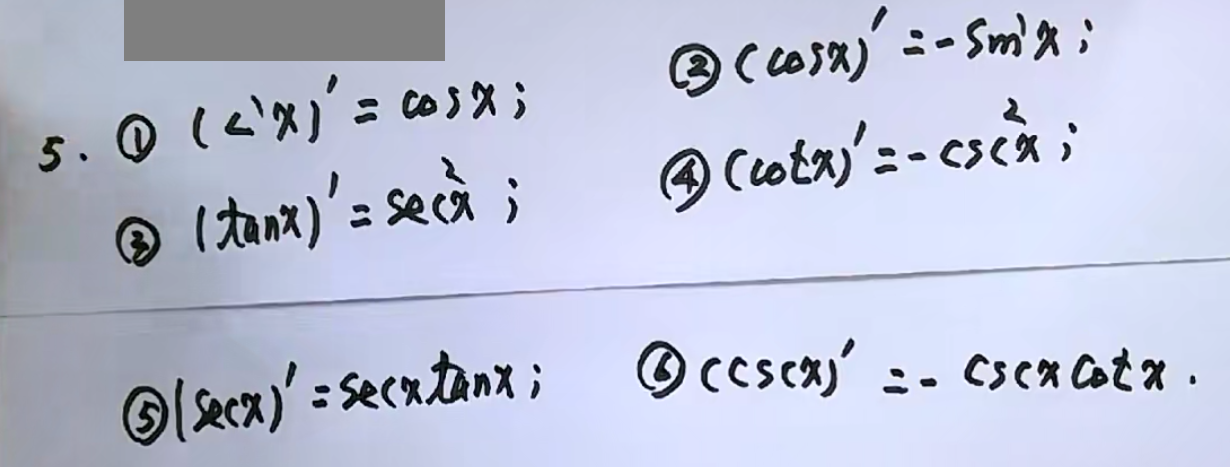 5. ① (   x)' = cosx; ② (cosx)' = -sinx;
③ (tanx)' = sec²x; ④ (cotx)' = -csc²x;
⑤ (secx)' = secxtanx; ⑥ (cscx)' = -cscxcotx.